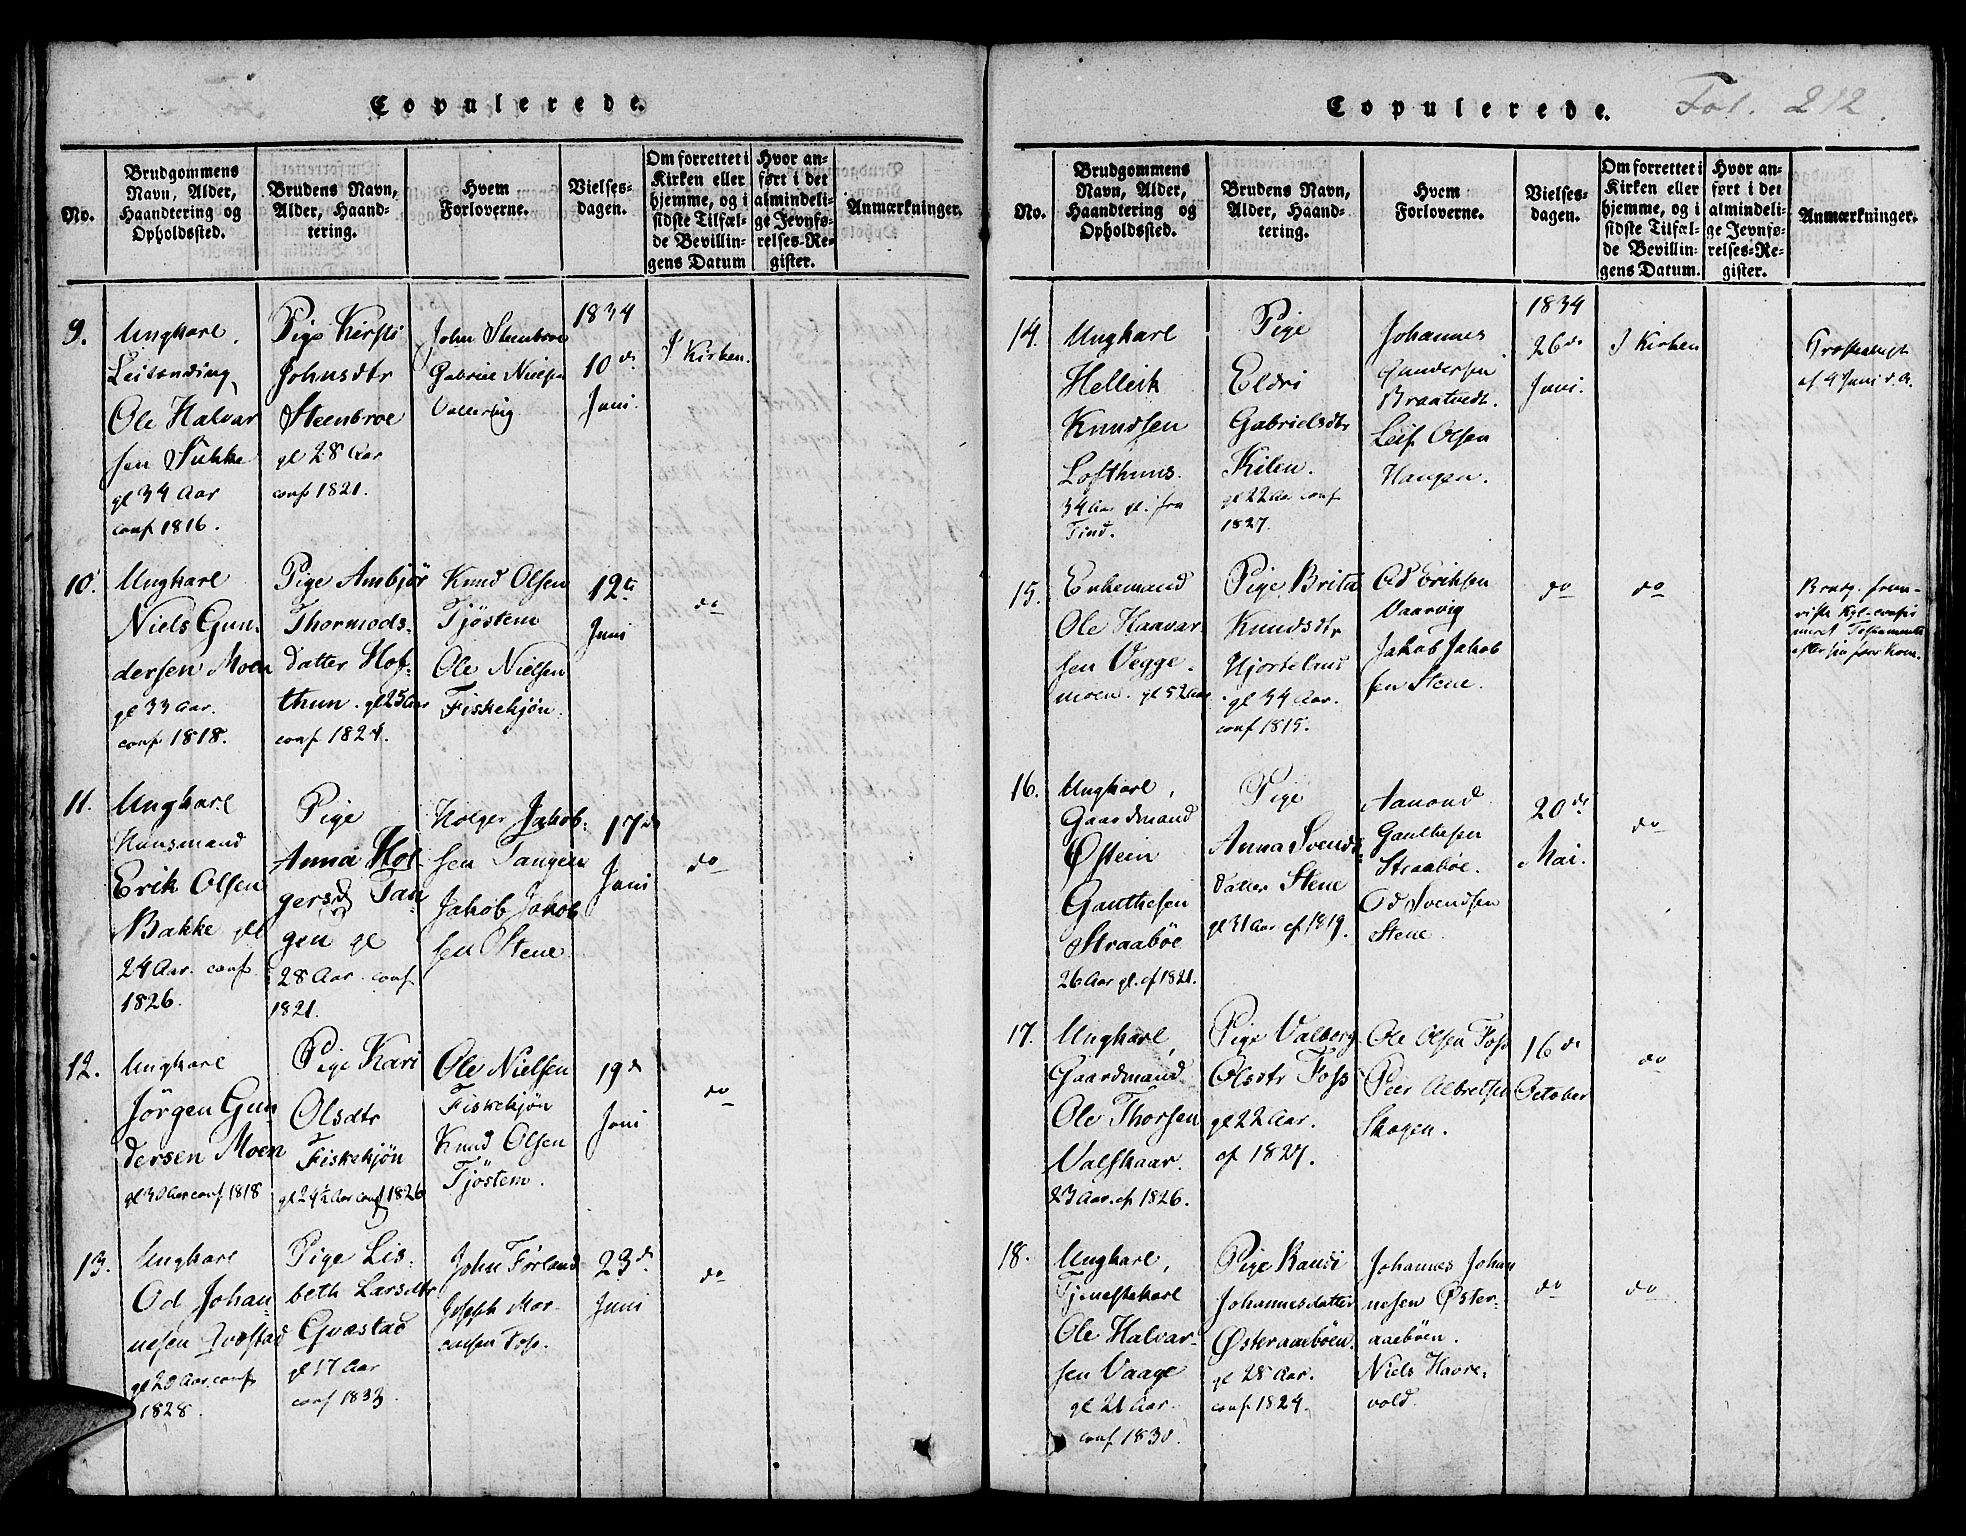 Copulerede.
No.
Brudgommens
Navn, Alder,
Haandtering og
Opholdssted.
Brudens Navn,
Alder, Haand-
tering.
Hvem
Forloverne.
Vielses-
dagen.
Om forrettet i
Kirken eller
hjemme, og i
sidste Tilfæl-
de Bevillin-
gens Datum
Hvor an-
ført i det
almindeli-
ge Jevnfø-
relses-Re-
gister.
Anmærkninger.
9.
Ungkarl,
Leilending,
Ole Halvar
sen Sukke
gl 34 Aar
conf 1816.
Pige Kirsti
Johnsdtr
Steenbroe
gl 28 Aar
conf 1821.
John Steenbroe
Gabriel Nielsen
Vallevig
1834
10de
Juni.
I Kirken.
10.
Ungkarl
Niels Gun-
dersen Moen
gl 33 Aar.
conf 1818.
Pige Ambjør
Thormods-
datter Hof-
thun. gl 25 Aar
conf 1824.
Knud Olsen
Tjøstem
Ole Nielsen
Fiskekjøn.
12te
Juni
do
11.
Ungkarl
Huusmand
Erik Olsen
Bakke gl
24 Aar. conf
1826.
Pige
Anna Hol
gersd Tan
gen gl
28 Aar. conf
1821.
Holger Jakob-
sen Tangen
Jakob Jakob
sen Stene
17de
Juni
do
12.
Ungkarl
Jørgen Gun
dersen Moen
gl 30 Aar conf 1818
Pige Kari
Olsdtr
Fiskekjøn
gl 24½ Aar conf 1826
Ole Nielsen
Fiskekjøn
Knud Olsen
Tjøstem.
19de
Juni
do
13.
Ungkarl
Od Johan
nesen Qvæstad
gl 20 Aar. conf
1828.
Pige Lis-
beth Larsdtr
Qvæstad
gl 17 Aar
conf 1833.
John Førland
Joseph Mor-
tensen Foss.
23de
Juni
do
Copulerede.
Fol. 212.
No.
Brudgommens
Navn, Alder,
Haandtering og
Opholdssted.
Brudens Navn,
Alder, Haand-
tering.
Hvem
Forloverne.
Vielses-
dagen.
Om forrettet i
Kirken eller
hjemme, og i
sidste Tilfæl-
de Bevillin-
gens Datum.
Hvor an-
ført i det
almindeli-
ge Jevnfø-
relses-Re-
gister.
Anmærkninger.
14.
Ungkarl
Hellerk
Knudsen
Lofthuus.
34 Aar gl. fra
Tind.
Pige
Eldri
Gabrielsdtr
Kilen.
gl 22 Aar conf
1827.
Johannes
Gundersen
Braatvedt.
Leif Olsen
Haugen.
1834
26de
Juni.
I Kirken
af 4 Juni d. A.
15.
Enkemand
Ole Haavar
sen Vegge-
moen. gl 52 Aar
Pige Brita
Knudsdtr
Hjortelrud
gl 34 Aar.
conf 1815.
Od Eriksen
Vaarvig
Jakob Jakob
sen Stene.
do
do
Brudg. frem-
viste
efter sin
16.
Ungkarl,
Gaardmand
Østein
Gauthesen
Straabøe
26 Aar gl. cf 1821.
Pige
Anna Svends
datter Stene
gl 31 Aar cf 1819.
Aamond
Gauthesen
Straabøe.
Od Svendsen
Stene.
20de
Mai.
do
17.
Ungkarl,
Gaardmand
Ole Thorsen
Valskaar.
23 Aar. cf 1826.
Pige Valborg
Olsdtr Foss
gl 22 Aar.
cf 1827.
Ole Olsen Foss
Peer Albretsen
Skogen.
16de
October
do
18.
Ungkarl,
Tjenestekarl
Ole Halvar-
sen Vaage
gl 21 Aar.
conf 1830.
Pige Randi
Johannesdatter
Østeraaebøen.
gl 28 Aar.
conf 1824.
Johannes Johan
nesen Øster-
aaebøen.
Niels Havre-
vold.
do
do